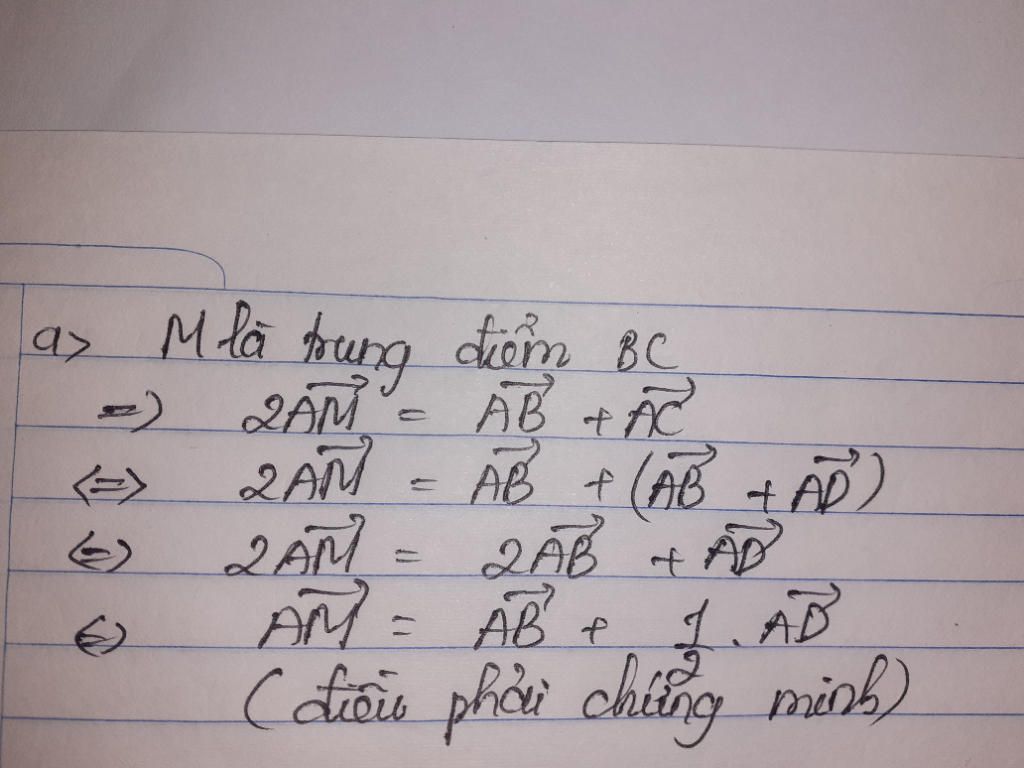 a> M là trung điểm BC
=> 2AM⃗ = AB⃗ + AC⃗
<=> 2AM⃗ = AB⃗ + (AB⃗ + AD⃗)
<=> 2AM⃗ = 2AB⃗ + AD⃗
<=> AM⃗ = AB⃗ + 1/2 . AD⃗
(điều phải chứng minh)